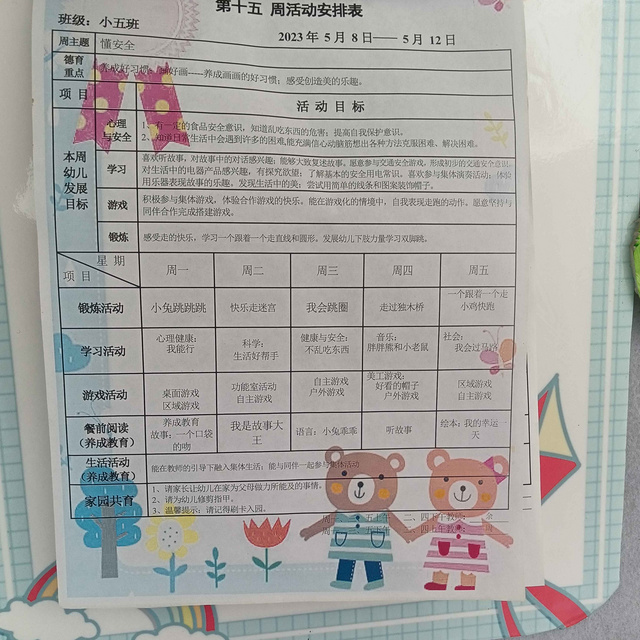 第十五 周活动安排表
班级：小五班
2023 年 5 月 8 日—— 5 月 12 日
周主题 懂安全
德育重点 养成好习惯：画好画——养成画画的好习惯；感受创造美的乐趣。
项 目 活 动 目 标
本周幼儿发展目标
心理与安全
1、有一定的食品安全意识，知道乱吃东西的危害；提高自我保护意识。
2、知道日常生活中会遇到许多的困难,能充满信心动脑筋想出各种方法克服困难、解决困难。
学习
喜欢听故事，对故事中的对话感兴趣；能够大致复述故事。愿意参与交通安全游戏，形成初步的交通安全意识。
对生活中的电器产品感兴趣，有探究欲望；了解基本的安全用电常识。喜欢参与集体演奏活动；体验
用乐器表现故事的乐趣。发现生活中的美；尝试用简单的线条和图案装饰帽子。
游戏
积极参与集体游戏，体验合作游戏的快乐。能在游戏化的情境中，自我表现走跑的动作。愿意坚持与
同伴合作完成搭建游戏。
锻炼 感受走的快乐，学习一个跟着一个走直线和圆形。发展幼儿下肢力量学习双脚跳。
星 期
项 目
周一 周二 周三 周四 周五
锻炼活动 小兔跳跳跳 快乐走迷宫 我会跳圈 走过独木桥 一个跟着一个走 小鸡快跑
学习活动 心理健康：我能行 科学：生活好帮手 健康与安全：不乱吃东西 音乐：胖胖熊和小老鼠 社会：我会过马路
游戏活动 桌面游戏 区域游戏 功能室活动 自主游戏 自主游戏 户外游戏 美工游戏：好看的帽子 户外游戏 区域游戏 自主游戏
餐前阅读（养成教育） 养成教育 故事：一个口袋的吻 我是故事大王 语言：小兔乖乖 听故事 绘本：我的幸运一天
生活活动（养成教育） 能在教师的引导下融入集体生活；能与同伴一起参与集体活动
家园共育
1、请家长让幼儿在家为父母做力所能及的事情。
2、请为幼儿修剪指甲。
3、温馨提示：请记得刷卡入园。